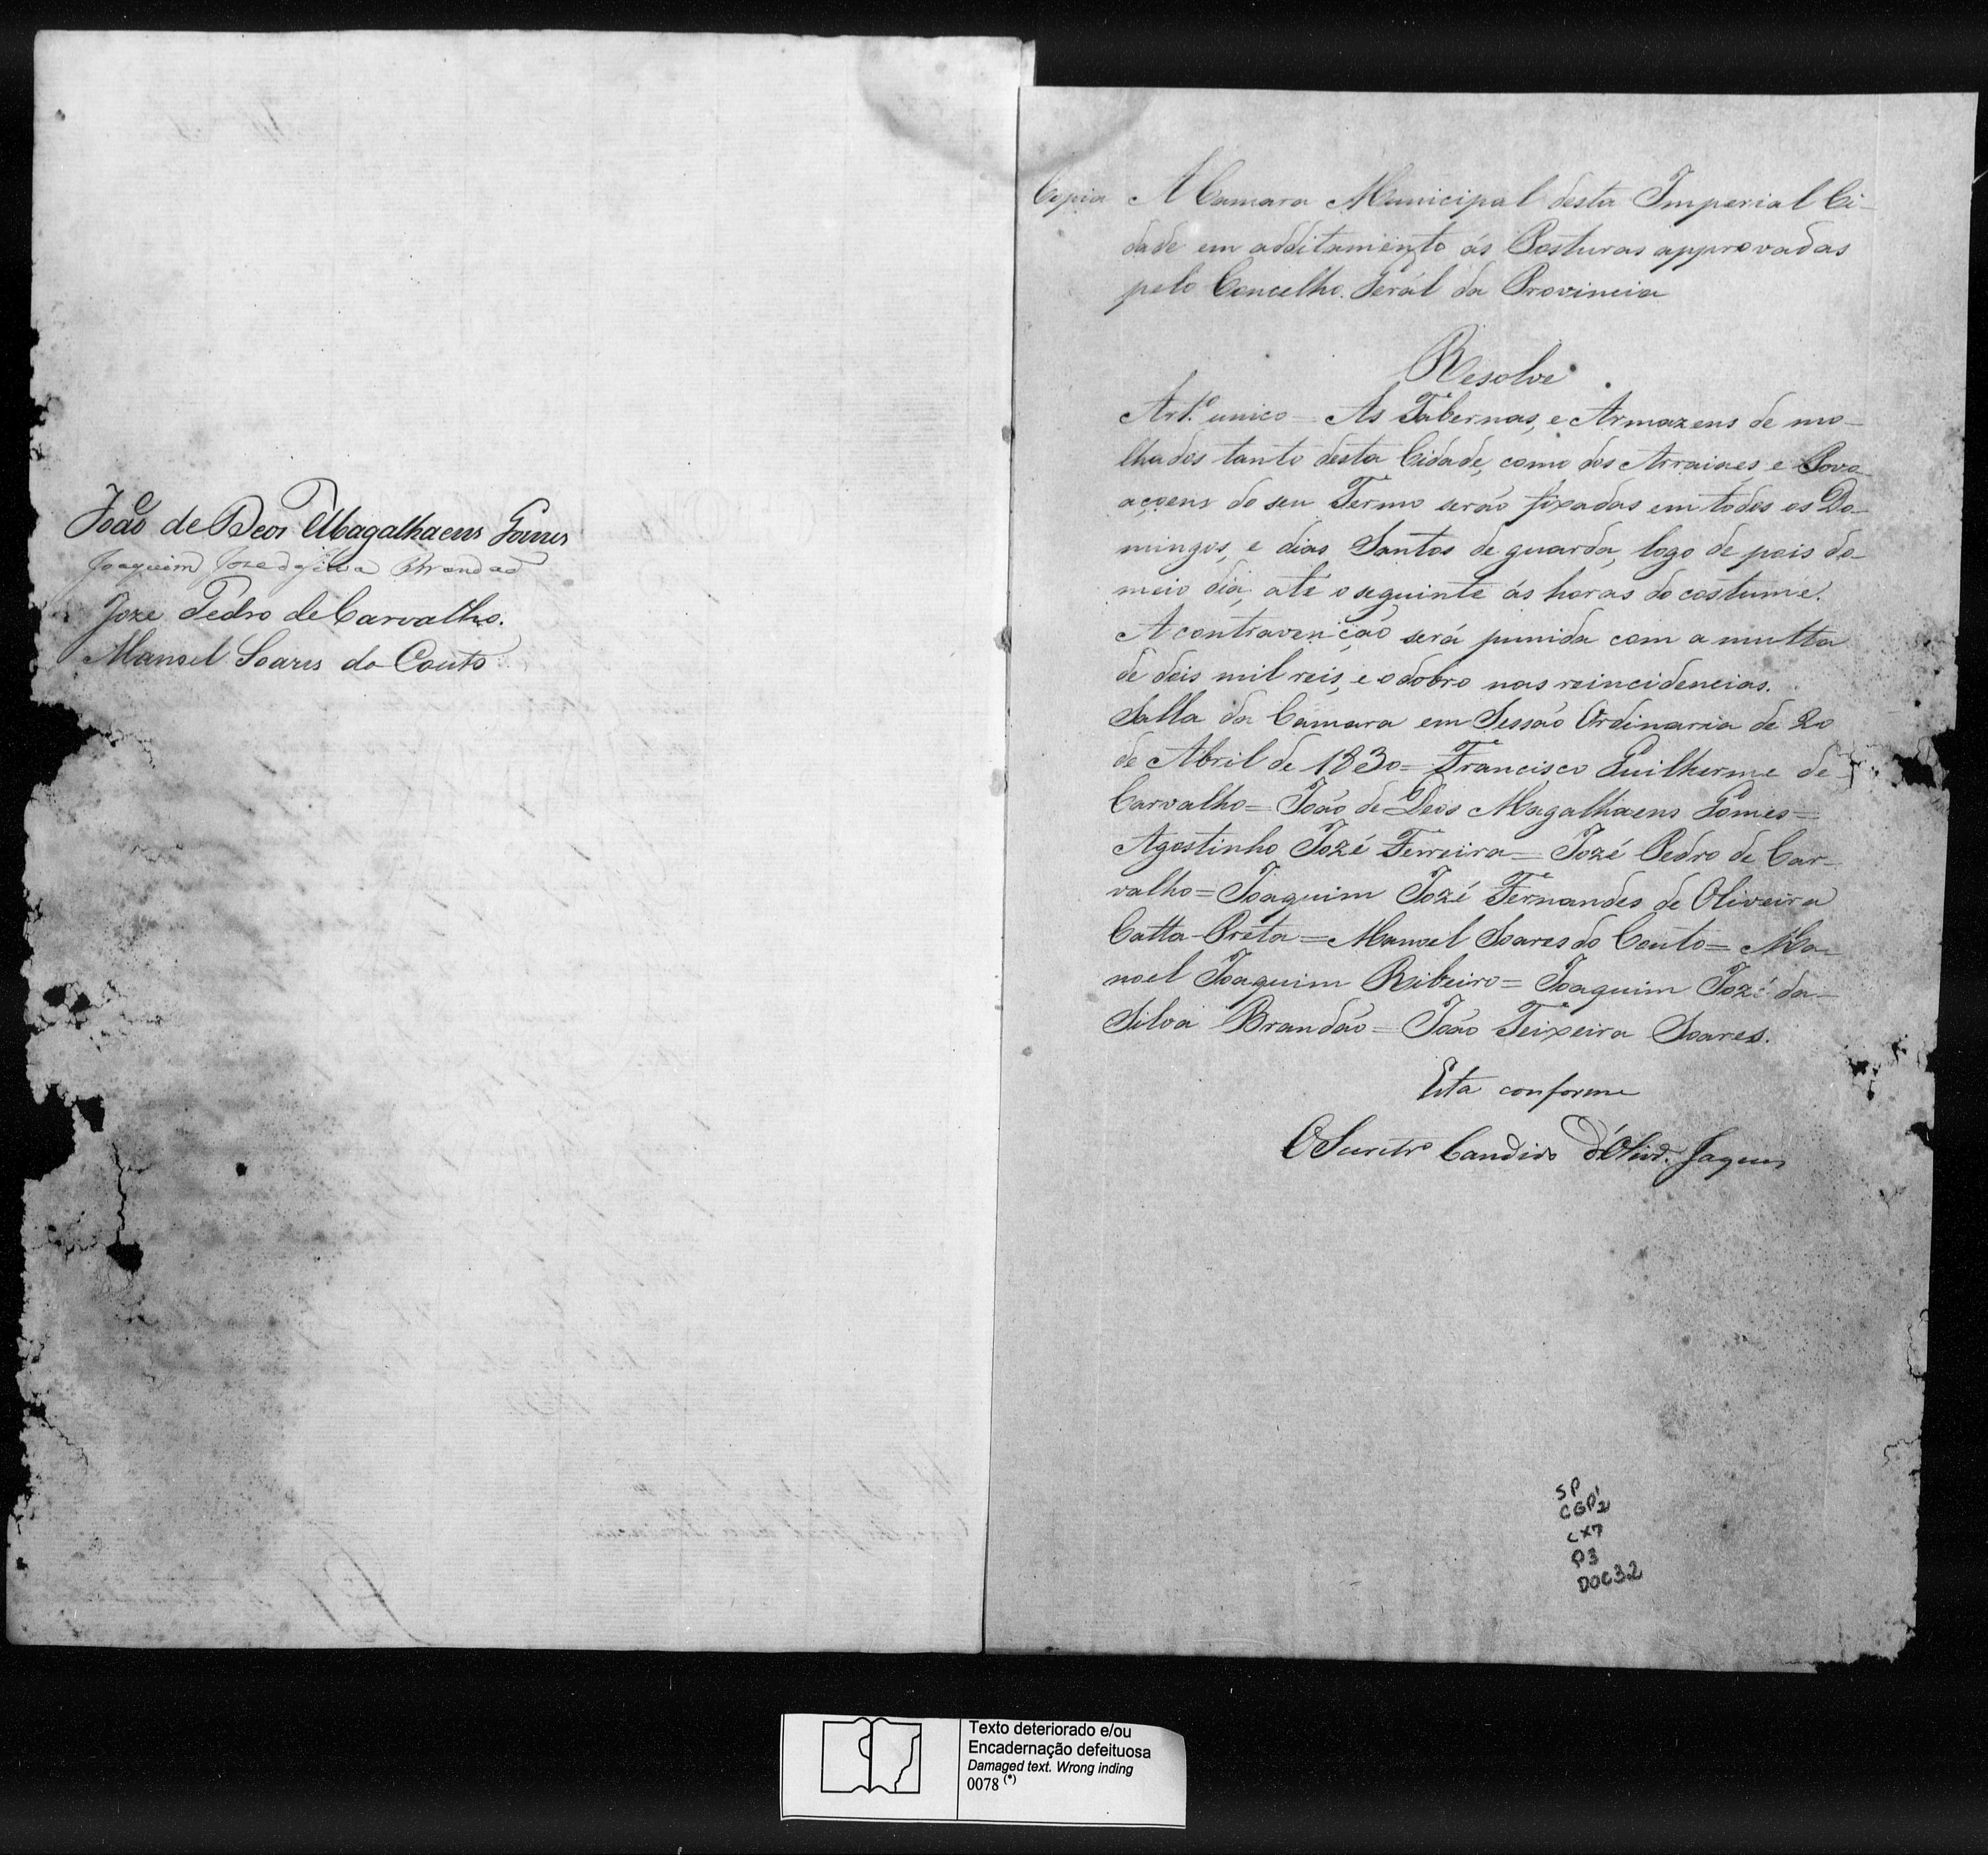 João de Deos Magalhaens Gomes
Joaquim Joze da Silva Brandaõ
Joze Pedro de Carvalho.
Manoel Soares do Couto
Copia A Camara Municipal desta Imperial Ci-
dade em additamento ás Posturas approvadas
pelo Concelho Gerál da Provincia
Resolve
Art.º unico = As Tabernas, e Armazens de mo-
lhados tanto desta Cidade, como dos Arraiaes e Povo-
açoens do seu Termo serão fixadas em todos os Do-
mingos, e dias Santos de guarda, logo de pois do
meio dia, até o seguinte ás horas do costume.
A contravenição será punida com a multa
de dois mil reis, e o dobro nas reincidencias.
Salla da Camara em Sessão Ordinaria de 20
de Abril de 1830 = Francisco Guilherme de
Carvalho = João de Deos Magalhaens Gomes =
Agostinho Jozé Ferreira = Jozé Pedro de Car-
valho = Joaquim Jozé Fernandes de Oliveira
Catta-Preta = Manoel Soares do Couto = Ma-
noel Joaquim Ribeiro = Joaquim Jozé da
Silva Brandão = João Teixeira Soares.
Esta conforme
O Secretr.o Candido d'Olivr.a Jaques
SP
CGP'2
CX7
P3
DOC32
Texto deteriorado e/ou
Encadernação defeituosa
Damaged text. Wrong inding
0078 (*)